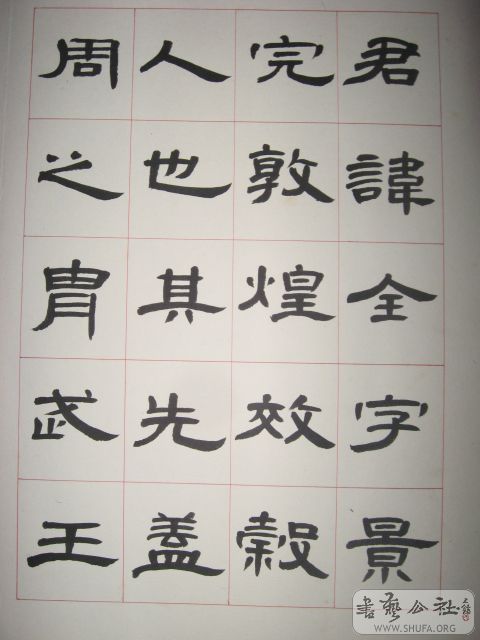 君諱全字景
完敦煌效穀
人也其先蓋
周之胄武王
書藝公社
WWW.SHUFA.ORG